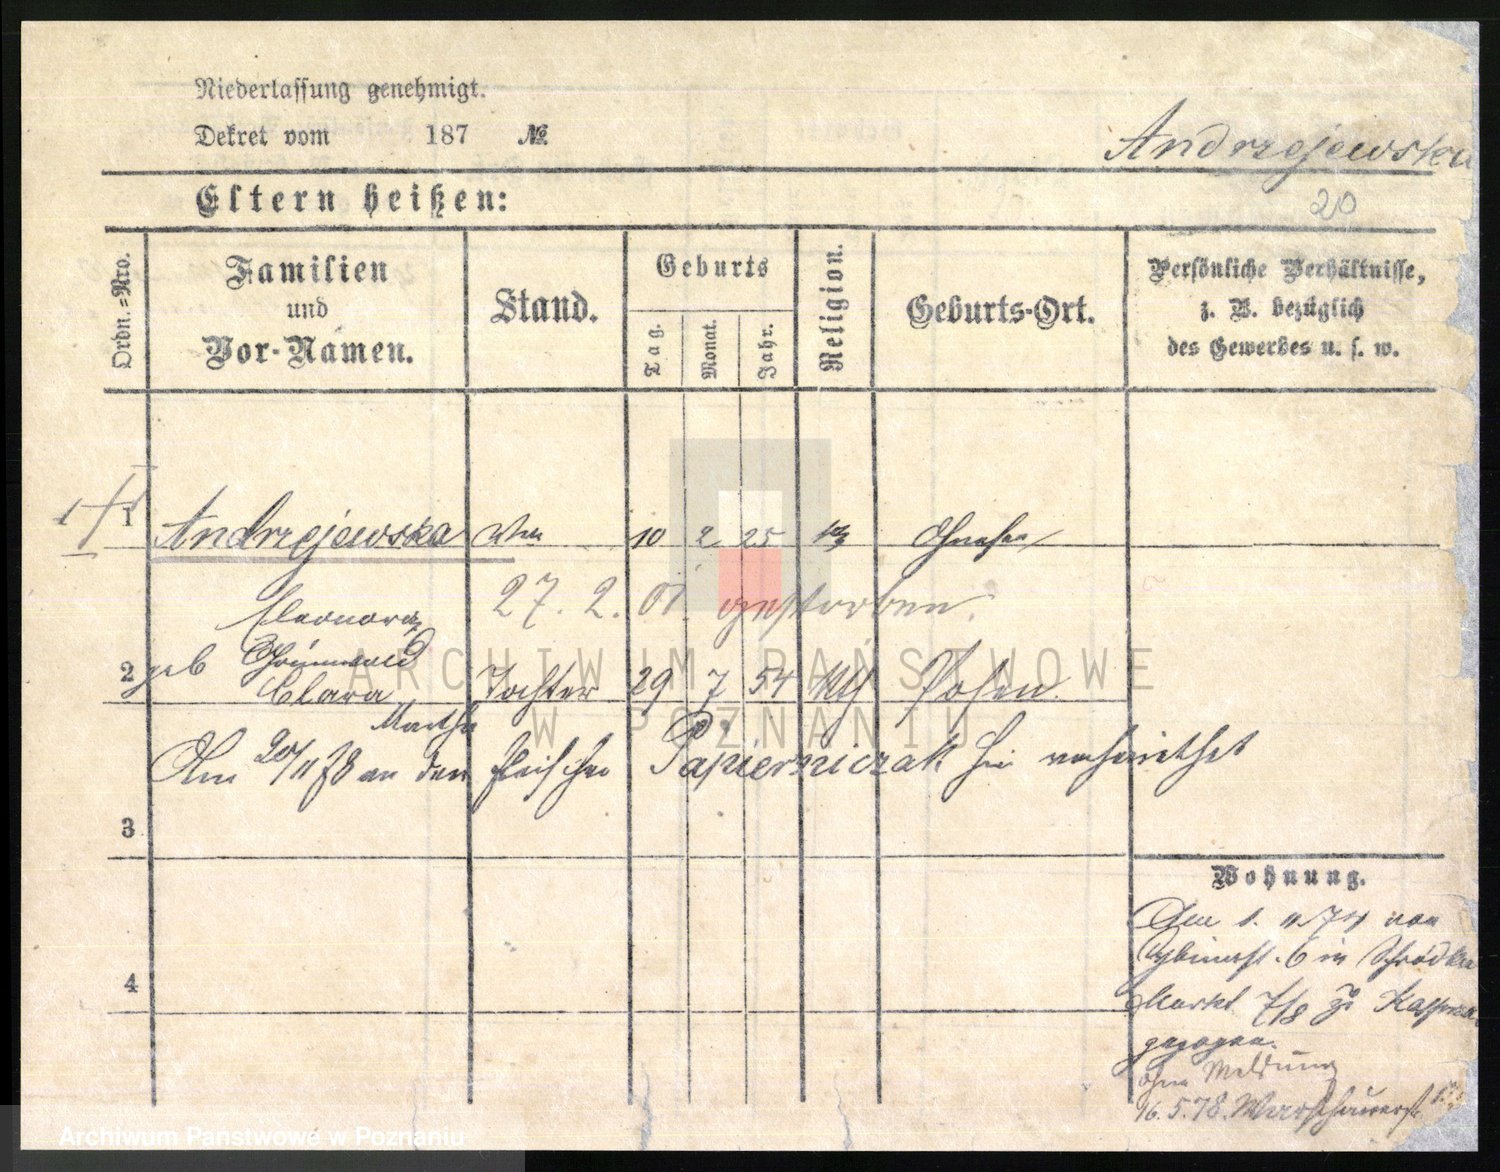 Niederlassung genehmigt.
Dekret vom 187 №
Andrzejewska
Eltern heißen:
20
Ordn.=Nro.
Familien
und
Vor-Namen.
Stand.
Geburts
Tag.
Monat.
Jahr.
Religion.
Geburts-Ort.
Persönliche Verhältnisse,
z. B. bezüglich
des Gewerbes u. s. w.
1 Andrzejewska Wwe 10 2 25 Gnesen
Eleonora 27. 2. 01 gestorben.
geb Grünwald
2 Clara Tochter 29 7 54 kth Posen
Martha
Am 20/11 78 an den Fleischer Papierniczak hier verheirathet
3
Wohnung.
Am 1. 11. 74 von
Cybinast. 6 in Schrodka
4
Markt 7/8 zu
gezogen.
ohne Meldung
16. 5. 78. Warschauerst.
ARCHIWUM PAŃSTWOWE
W POZNANIU
Archiwum Państwowe w Poznaniu